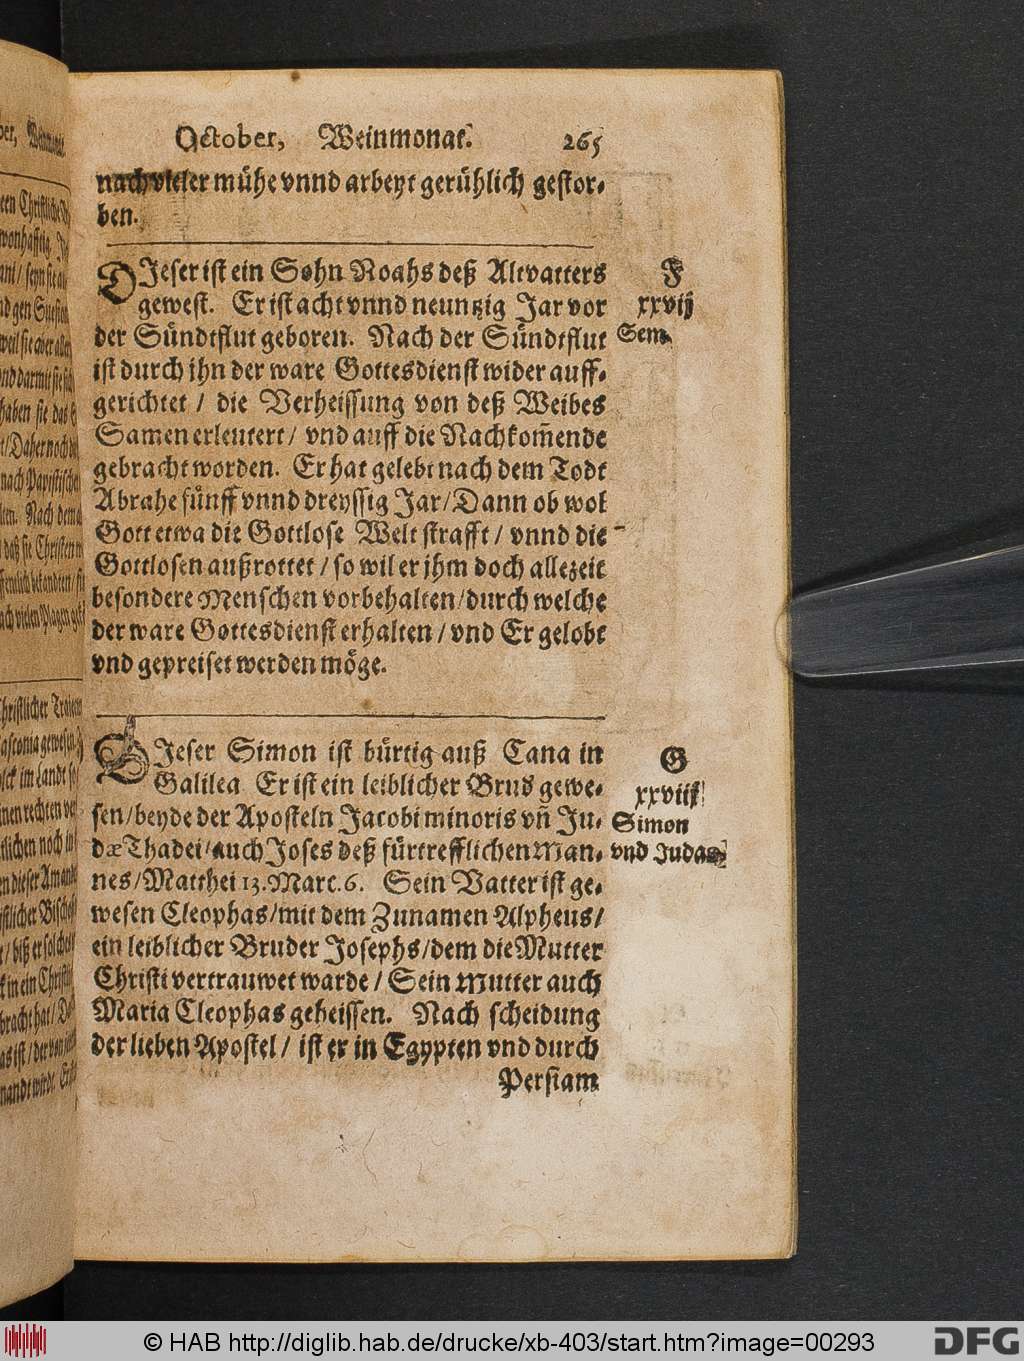 October, Weinmonat. 265
nach vieler mühe vnnd arbeyt gerühlich gestor-
ben.
DIeser ist ein Sohn Noahs deß Altvatters
gewest. Er ist acht vnnd neuntzig Jar vor
der Sündtflut geboren. Nach der Sündtflut
ist durch jhn der ware Gottesdienst wider auff-
gerichtet / die Verheissung von deß Weibes
Samen erleutert / vnd auff die Nachkom̃ende
gebracht worden. Er hat gelebt nach dem Todt
Abrahe fünff vnnd dreyssig Jar / Dann ob wol
Gott etwa die Gottlose Welt strafft / vnnd die
Gottlosen außrottet / so wil er jhm doch allezeit
besondere Menschen vorbehalten / durch welche
der ware Gottesdienst erhalten / vnd Er gelobt
vnd gepreiset werden möge.
F
xxvij
Sem.
DIeser Simon ist bürtig auß Cana in
Galilea Er ist ein leiblicher Brud gewe-
sen / beyde der Aposteln Jacobi minoris vñ Ju-
dæ Thadei / auch Joses deß fürtrefflichen Man-
nes / Matthei 13. Marc. 6. Sein Vatter ist ge-
wesen Cleophas / mit dem Zunamen Alpheus /
ein leiblicher Bruder Josephs / dem die Mutter
Christi vertrauwet warde / Sein Mutter auch
Maria Cleophas geheissen. Nach scheidung
der lieben Apostel / ist er in Egypten vnd durch
Persiam
G
xxviij
Simon
vnd Judas
© HAB http://diglib.hab.de/drucke/xb-403/start.htm?image=00293
DFG